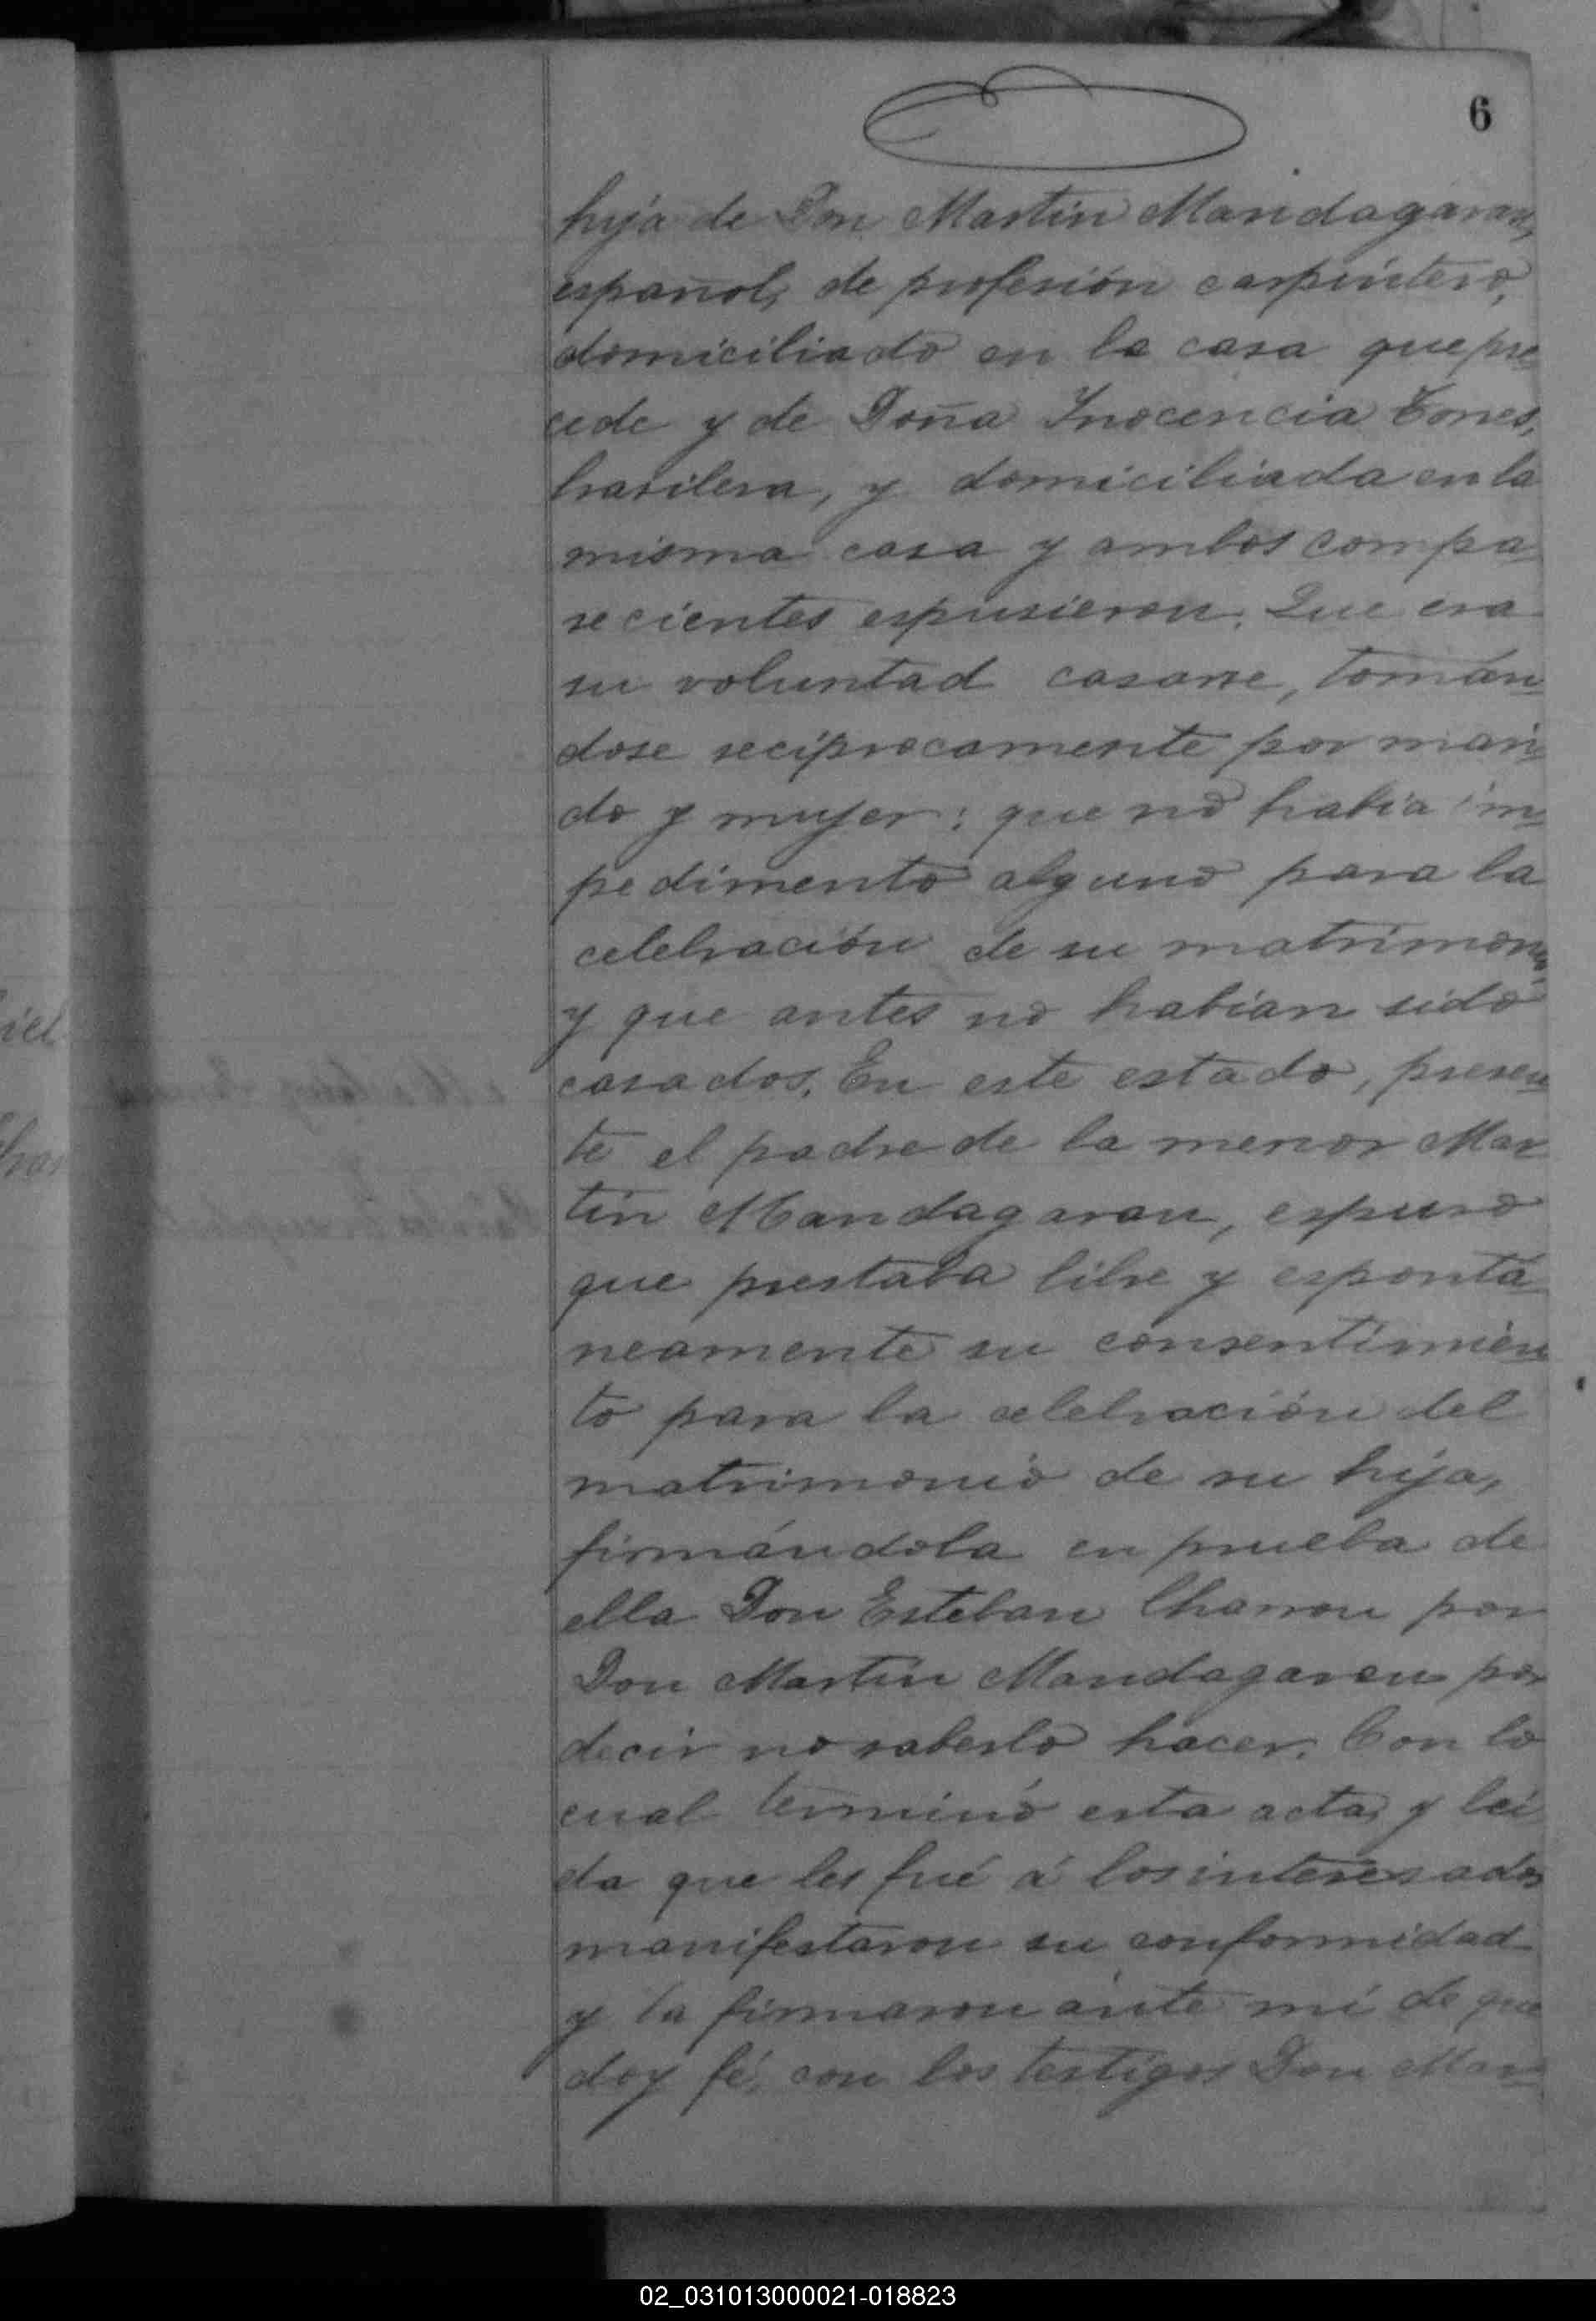 6
hija de Don Martin Mandagaran,
español, de profesión carpintero,
domiciliado en la casa que pre
cede y de Doña Inocencia Torres,
brasilera, y domiciliada en la
misma casa y ambos compa
recientes espusieron: Que era
su voluntad casarse, tomán
dose reciprocamente por mari
do y mujer; que no habia im
pedimento alguno para la
celebración de su matrimonio,
y que antes no habian sido
casados. En este estado, presen
te el padre de la menor Mar
tin Mandagaran, espuso
que prestaba libre y espontá
neamente su consentimien
to para la celebración del
matrimonio de su hija,
firmándola en prueba de
ella Don Esteban Charron por
Don Martin Mandagaran por
decir no saberlo hacer. Con lo
cual terminó esta acta, y lei
da que les fué á los interesados
manifestaron su conformidad
y la firmaron ante mi de que
doy fé, con los testigos Don Mar
02_031013000021-018823